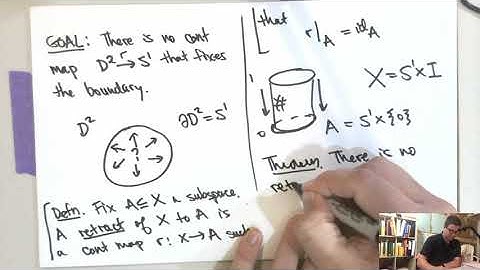 GOAL: There is no cont
map D² r→ S¹ that fixes
the boundary.
D²
∂D² = S¹
?
Defn. Fix A ⊆ X a subspace.
A retract of X to A is
a cont map r: X → A such
that
r|_A = id_A
X = S¹×I
1
#
0
A = S¹×{0}
Theorem. There is no
retra